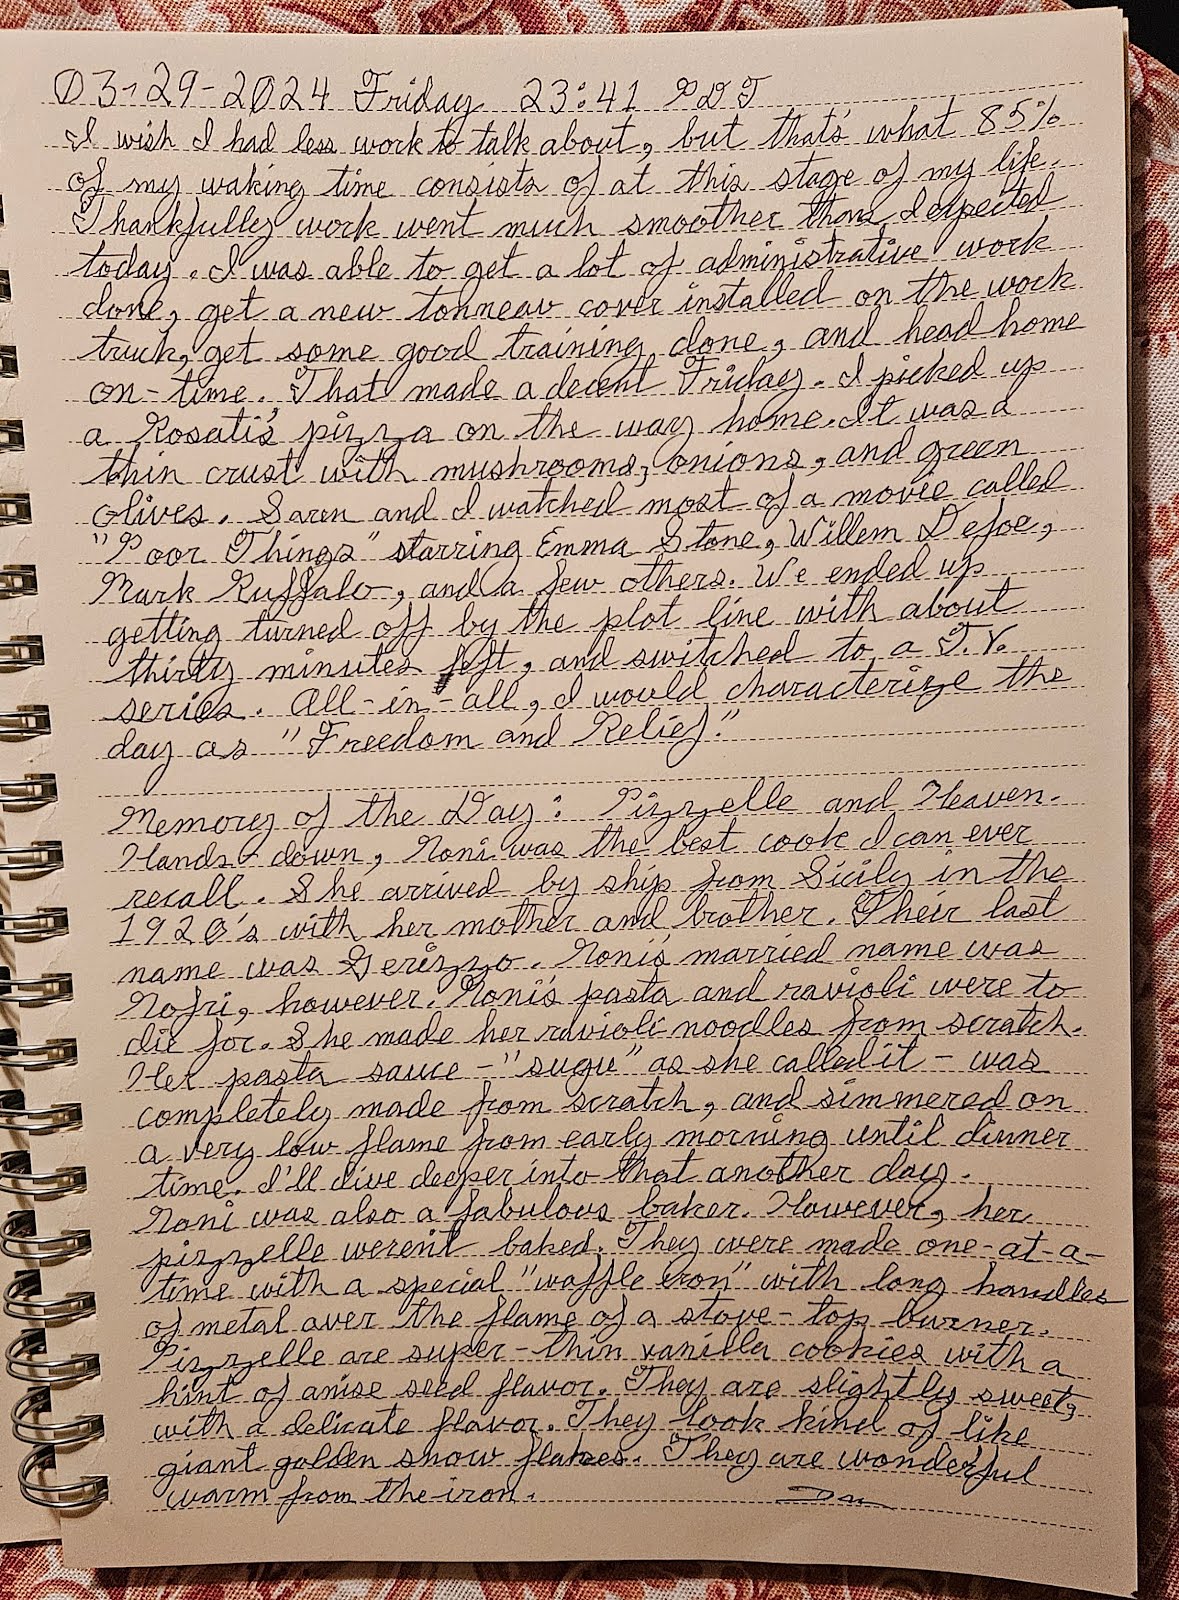 03-29-2024 Friday 23:41 PDT
I wish I had less work to talk about, but that's what 85%
of my waking time consists of at this stage of my life.
Thankfully work went much smoother than I expected
today. I was able to get a lot of administrative work
done, get a new tonneau cover installed on the work
truck, get some good training done, and head home
on-time. That made a decent Friday. I picked up
a Rosati's pizza on the way home. It was a
thin crust with mushrooms, onions, and green
olives. Saren and I watched most of a movie called
"Poor Things" starring Emma Stone, Willem Defoe,
Mark Ruffalo, and a few others. We ended up
getting turned off by the plot line with about
thirty minutes left, and switched to a T.V.
series. All-in-all, I would characterize the
day as "Freedom and Relief."
Memory of the Day: Pizzelle and Heaven.
Hands-down, Noni was the best cook I can ever
recall. She arrived by ship from Sicily in the
1920's with her mother and brother. Their last
name was Gerizzo. Noni's married name was
Nofri, however. Noni's pasta and ravioli were to
die for. She made her ravioli noodles from scratch.
Her pasta sauce - "sugu" as she called it - was
completely made from scratch, and simmered on
a very low flame from early morning until dinner
time. I'll dive deeper into that another day.
Noni was also a fabulous baker. However, her
pizzelle weren't baked. They were made one-at-a-
time with a special "waffle iron" with long handles
of metal over the flame of a stove-top burner.
Pizzelle are super-thin vanilla cookies with a
hint of anise seed flavor. They are slightly sweet,
with a delicate flavor. They look kind of like
giant golden snow flakes. They are wonderful
warm from the iron.